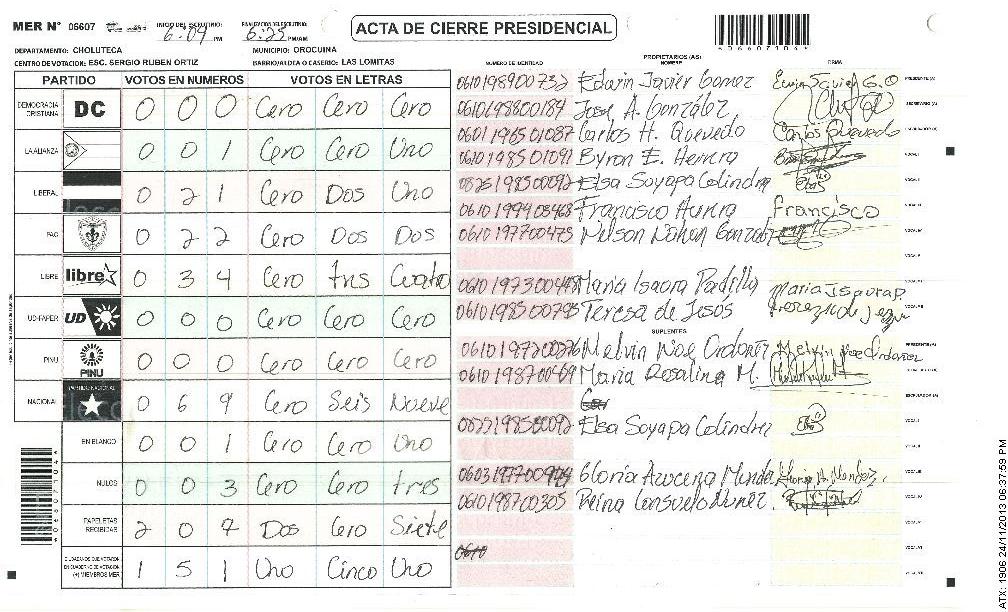 MER N° 06607 INICIO DEL ESCRUTINIO: 6:09 PM FINALIZACION DEL ESCRUTINIO: 6:25 PM/AM ACTA DE CIERRE PRESIDENCIAL
DEPARTAMENTO: CHOLUTECA MUNICIPIO: OROCUINA
CENTRO DE VOTACION: ESC. SERGIO RUBEN ORTIZ BARRIO/ALDEA O CASERIO: LAS LOMITAS
PARTIDO VOTOS EN NUMEROS VOTOS EN LETRAS
DEMOCRACIA CRISTIANA DC 0 0 0 Cero Cero Cero
LA ALIANZA 0 0 1 Cero Cero Uno
LIBERAL 0 2 1 Cero Dos Uno
PAC 0 2 2 Cero Dos Dos
LIBRE libre 0 3 4 Cero tres Cuatro
UD-FAPER UD 0 0 0 Cero Cero Cero
PINU PINU 0 0 0 Cero Cero Cero
NACIONAL PARTIDO NACIONAL 0 6 9 Cero Seis Nueve
EN BLANCO 0 0 1 Cero Cero Uno
NULOS 0 0 3 Cero Cero tres
PAPELETAS RECIBIDAS 2 0 7 Dos Cero Siete
CIUDADANOS QUE VOTARON EN CUADERNO DE VOTACION (+) MIEMBROS MER 1 5 1 Uno Cinco Uno
PROPIETARIOS (AS)
NUMERO DE IDENTIDAD NOMBRE FIRMA
0610198900732 Edwin Javier Gomez PRESIDENTE (A)
0610198800184 Jose A. González SECRETARIO (A)
0601196501087 Carlos H. Quevedo Carlos Quevedo ESCRUTADOR (A)
0610198501091 Byron E. Herrera VOCAL I
0825198500092 Elsa Soyapa Colindrez
Francisco
0610197700475 Nelson
María Isaora Padilla
0610198500795 Teresa de Jesús
SUPLENTES
0610198700276 Melvin Noe Ordoñez PRESIDENTE (A)
Maria Rosalina M.
ESCRUTADOR (A)
Elsa Soyapa Colindrez
Gloria Azucena
0610198700305 Reina Consuelo Nunez.
0610
ATX: 1906 24/11/2013 06:37:59 PM